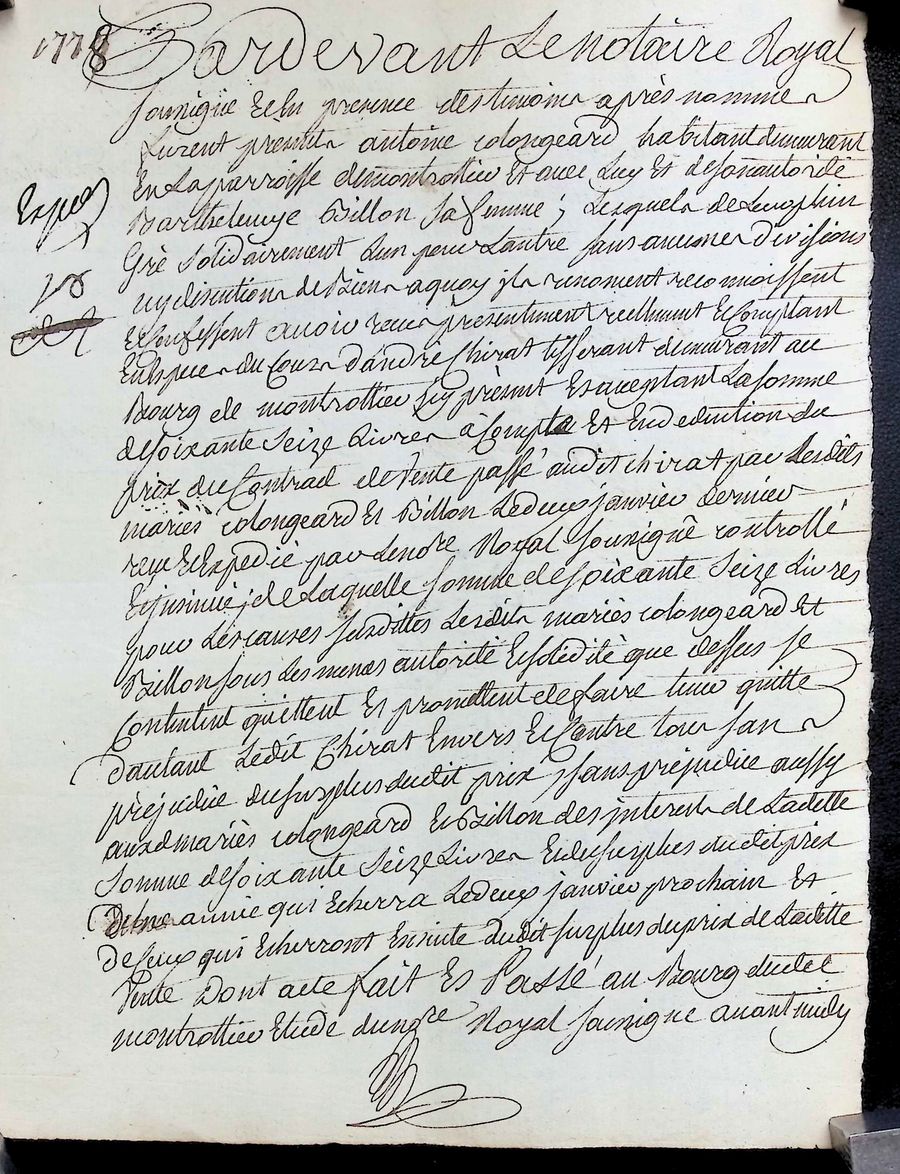 1778
Pardevant Le notaire Royal
soussigné Et En presence des temoins après nommés
furent presents antoine colongeard habitant demeurant
En La parroisse de montrottier Et avec Luy Et de son autorité
Barthelemye Billon sa femme ; Lesquels de Leur plein
Gré solidairement L'un pour L'autre sans aucunes Divisions
ny discution de Biens a quoy ils renoncent reconnoissent
Et Confessent avoir reçu presentement reellement Et Comptant
En Espece du Cours d'andré Chirat tisserant demeurant au
Bourg de montrottier icy présent Et acceptant La somme
de soixante seize Livres à Compte Et En deduction du
prix du Contract de Vente passé audit chirat par Lesdits
mariés colongeard Et Billon Le deux janvier dernier
reçu Et Expedié par Le nore Royal soussigné controllé
Et insinué ; de Laquelle somme de soixante seize Livres
pour Les causes susdittes Lesdits mariés colongeard Et
Billon sous Les memes autorité Et solidité que dessus se
Contentent quittent Et promettent de faire tenir quitte
d'autant Ledit Chirat Envers Et Contre tous sans
préjudice du surplus dudit prix, sans préjudice aussy
auxd mariés colongeard Et Billon des interets de Ladette
somme de soixante seize Livres Et du surplus dudit prix
annie qui Echerra Le deux janvier prochain Et
de Ceux qui Echerront Ensuite dudit surplus du prix de Ladette
Vente Dont acte fait Et Passé au Bourg dudit
montrottier Etude dunore Royal soussigné avant midy
Exped